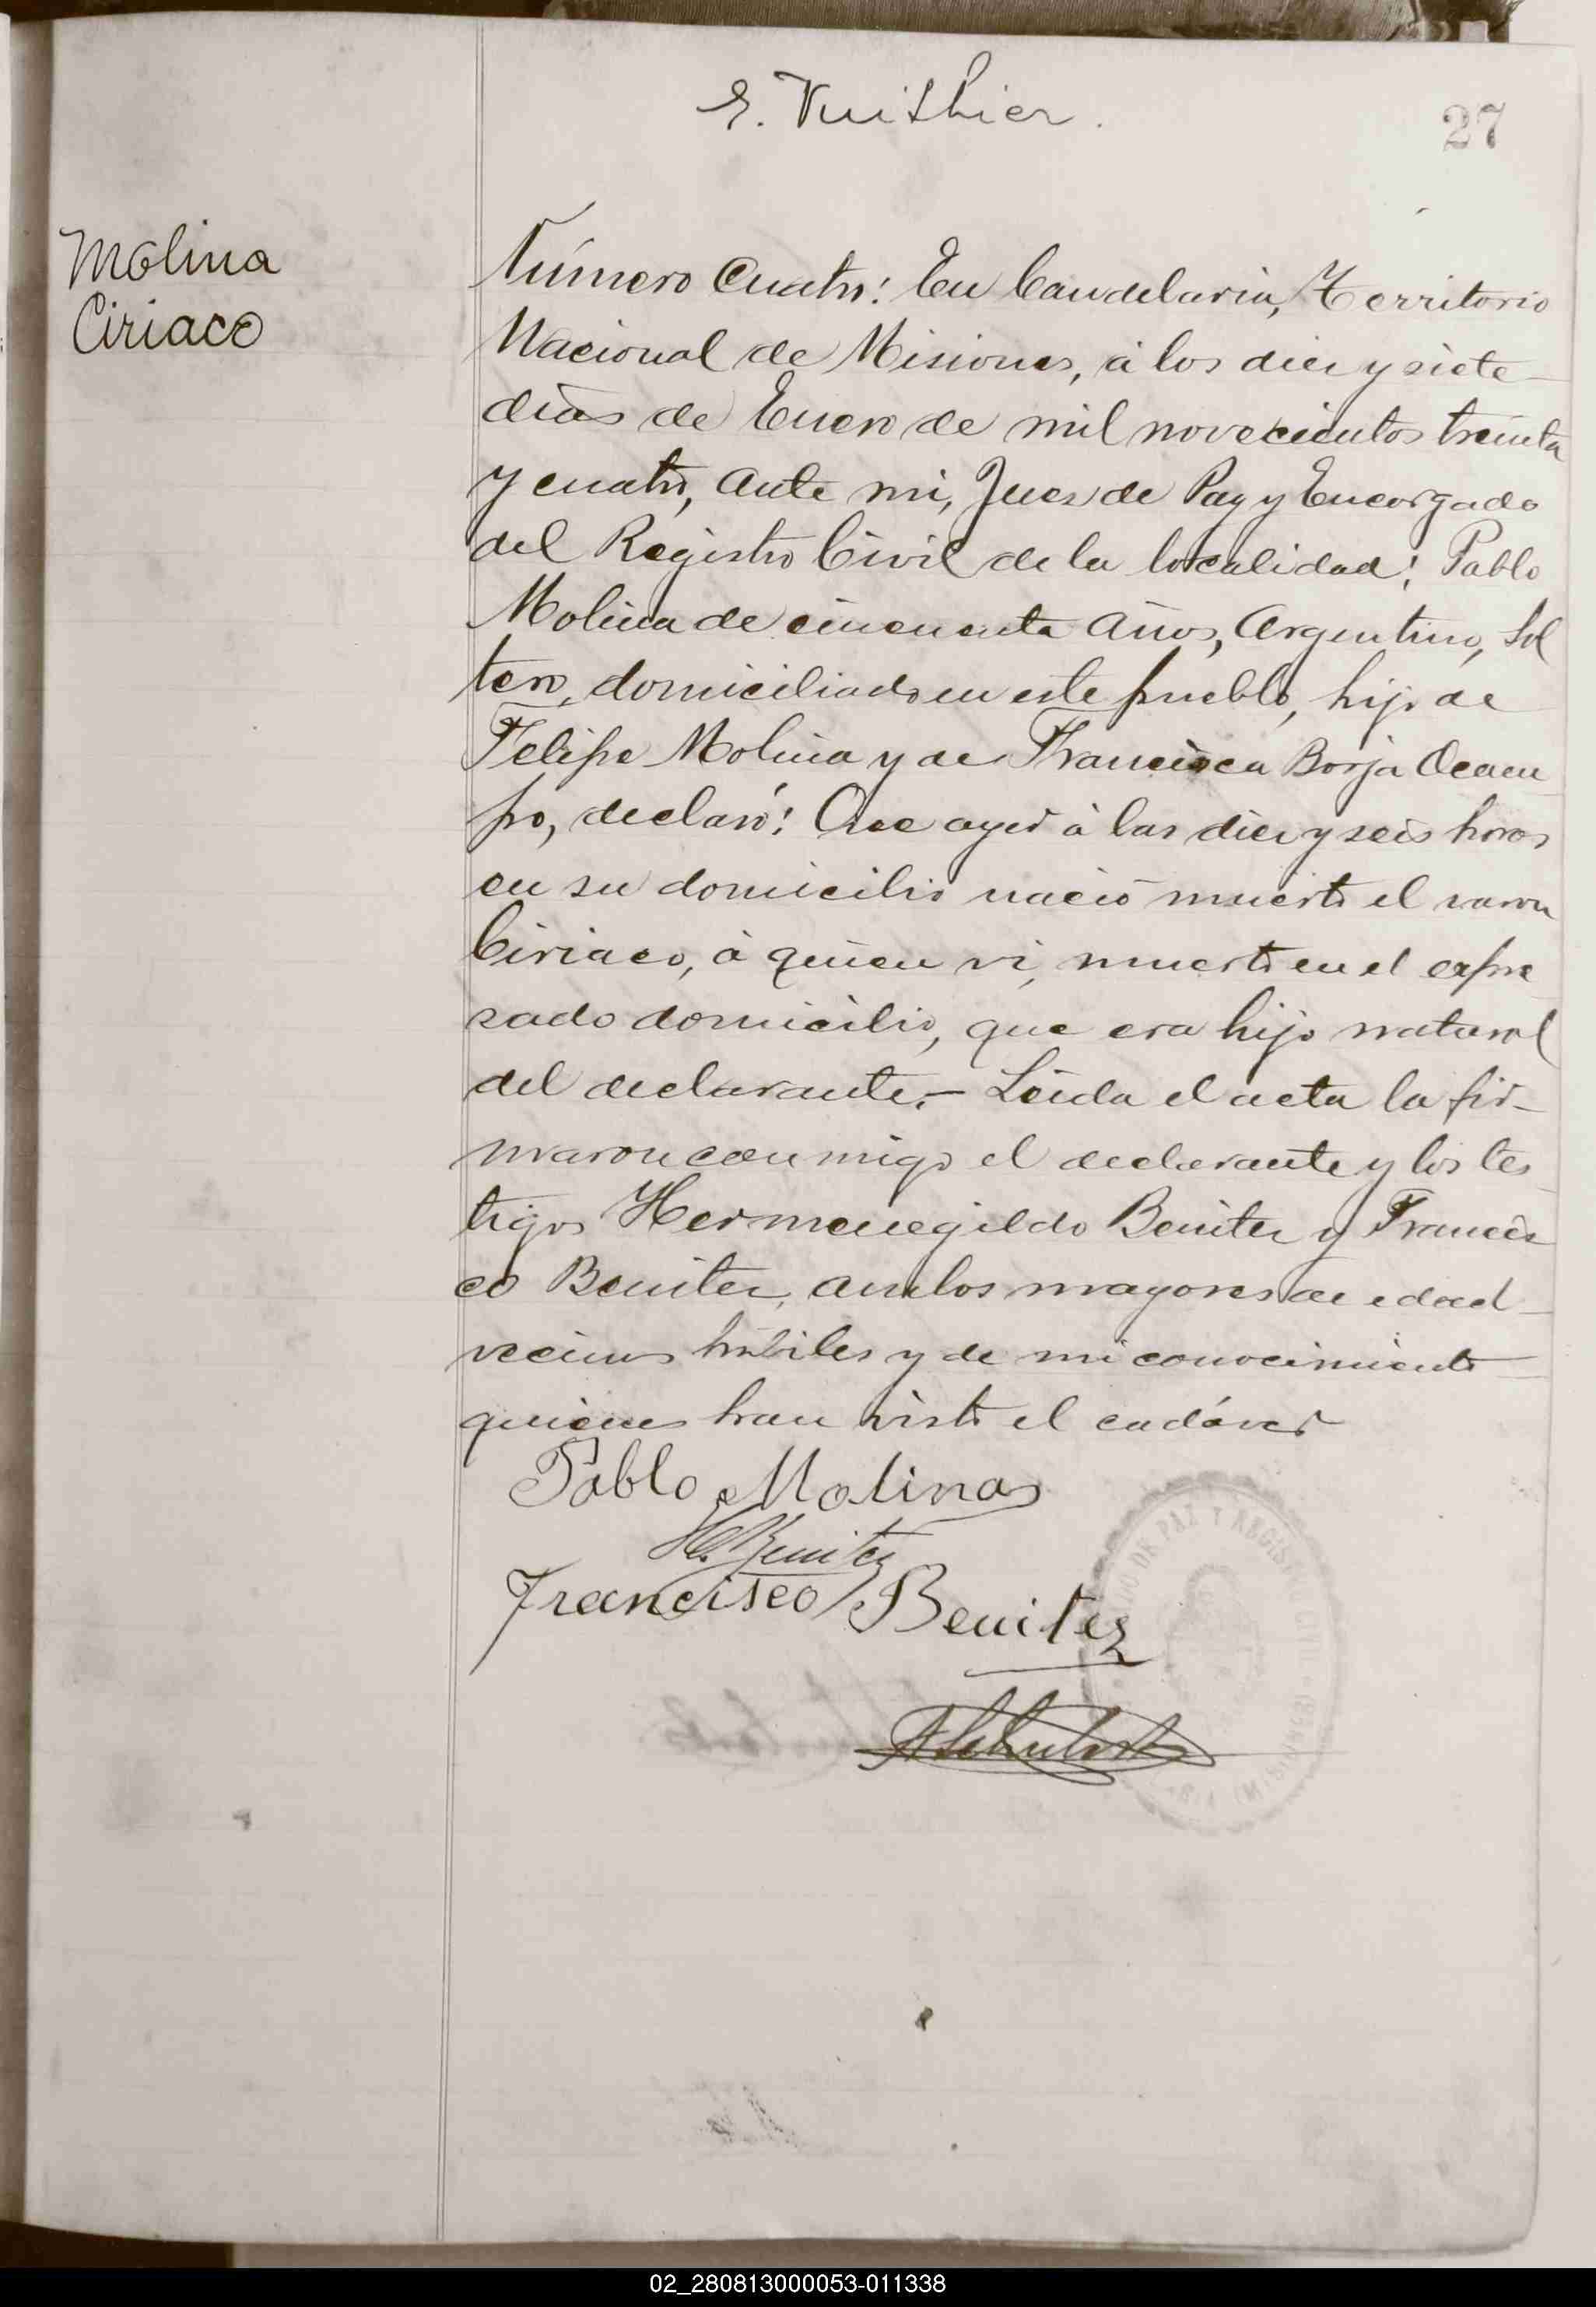 E. Vuithier.
27
Molina
Ciriaco
Número Cuatro: En Candelaria, Territorio
Nacional de Misiones, á los diez y siete
días de Enero de mil novecientos treinta
y cuatro, ante mi, Juez de Paz y Encargado
del Registro Civil de la localidad: Pablo
Molina de cincuenta años, Argentino, Sol
tero, domiciliado en este pueblo, hijo de
Felipe Molina y de Francisca Borja Ocam
po, declaró: Que ayer á las diez y seis horas
en su domicilio nació muerto el varon
Ciriaco, á quien vi, muerto en el expre
sado domicilio, que era hijo natural
del declarante.- Leida el acta la fir-
maron conmigo el declarante y los tes
tigos Hermenegildo Benitez y Francis
co Benitez, ambos mayores de edad
vecinos hábiles y de mi conocimiento
quienes han visto el cadáver
Pablo Molinas
H. Benitez
Francisco Benitez
DE PAZ Y REGIS
02_280813000053-011338